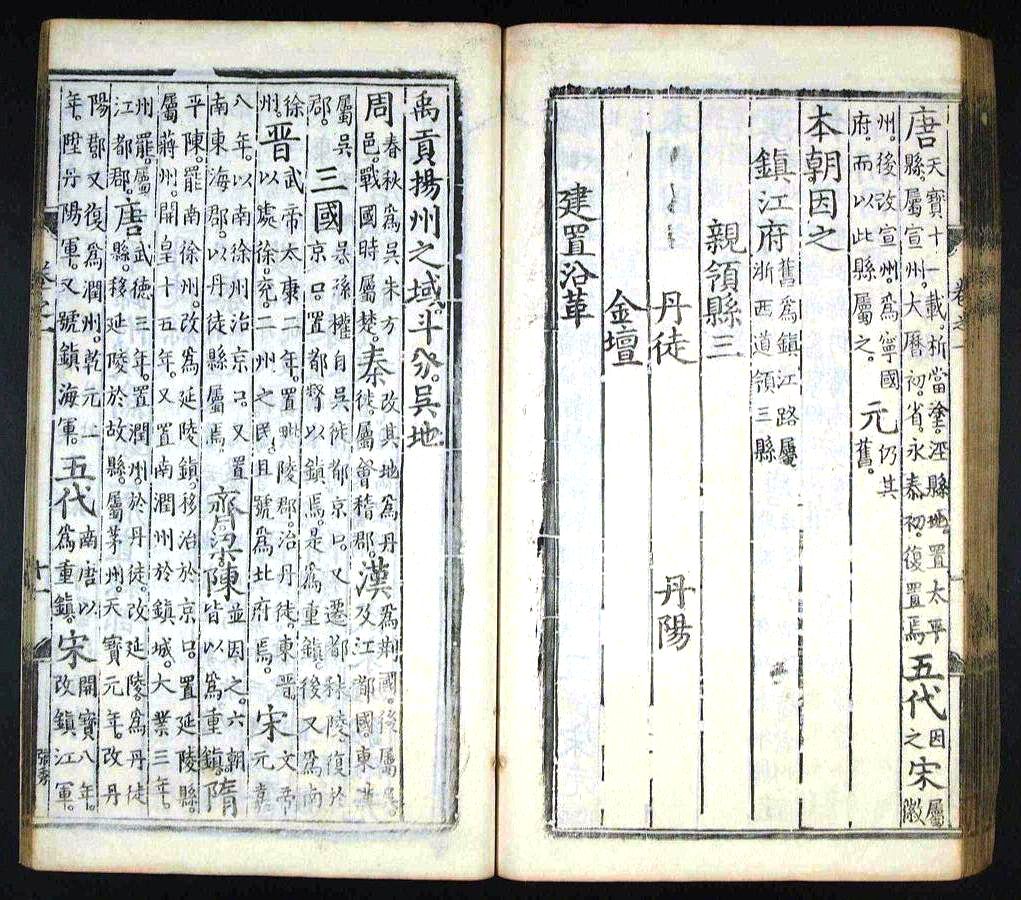 唐天寶十一載析當塗涇縣地置太平
縣屬宣州大曆初省永泰初復置焉五代因之宋屬徽
州後改宣州為寧國
府而以此縣屬之元仍其舊
本朝因之
鎮江府舊為鎮江路屬
浙西道領三縣
親領縣三
丹徒 丹陽
金壇
建置沿革
禹貢揚州之域斗分吳地
周春秋為吳朱方邑戰國時屬楚秦改其地為丹徒屬會稽郡漢為荆國後屬吳及江都國東漢
屬吳郡三國吳孫權自吳徙都京口又遷都秣陵復於京口置都督以鎮焉是為重鎮後又為南
徐州晉武帝太康二年置毗陵郡治丹徒東晉以處徐兖二州之民且號為北府焉宋文帝元嘉
八年以南徐州治京口又置南東海郡以丹徒縣屬焉齊梁陳並因之六朝皆以為重鎮隋
平陳罷南徐州改為延陵鎮移治於京口置延陵縣屬蔣州開皇十五年又置南潤州於鎮城大業三年
州罷屬江都郡唐武德三年置潤州於丹徒改延陵為丹徒縣移延陵於故縣屬茅州天寶元年改丹
陽郡又復為潤州乾元一年陞丹陽軍又號鎮海軍五代南唐以為重鎮宋開寶八年改鎮江軍
卷之一
十一